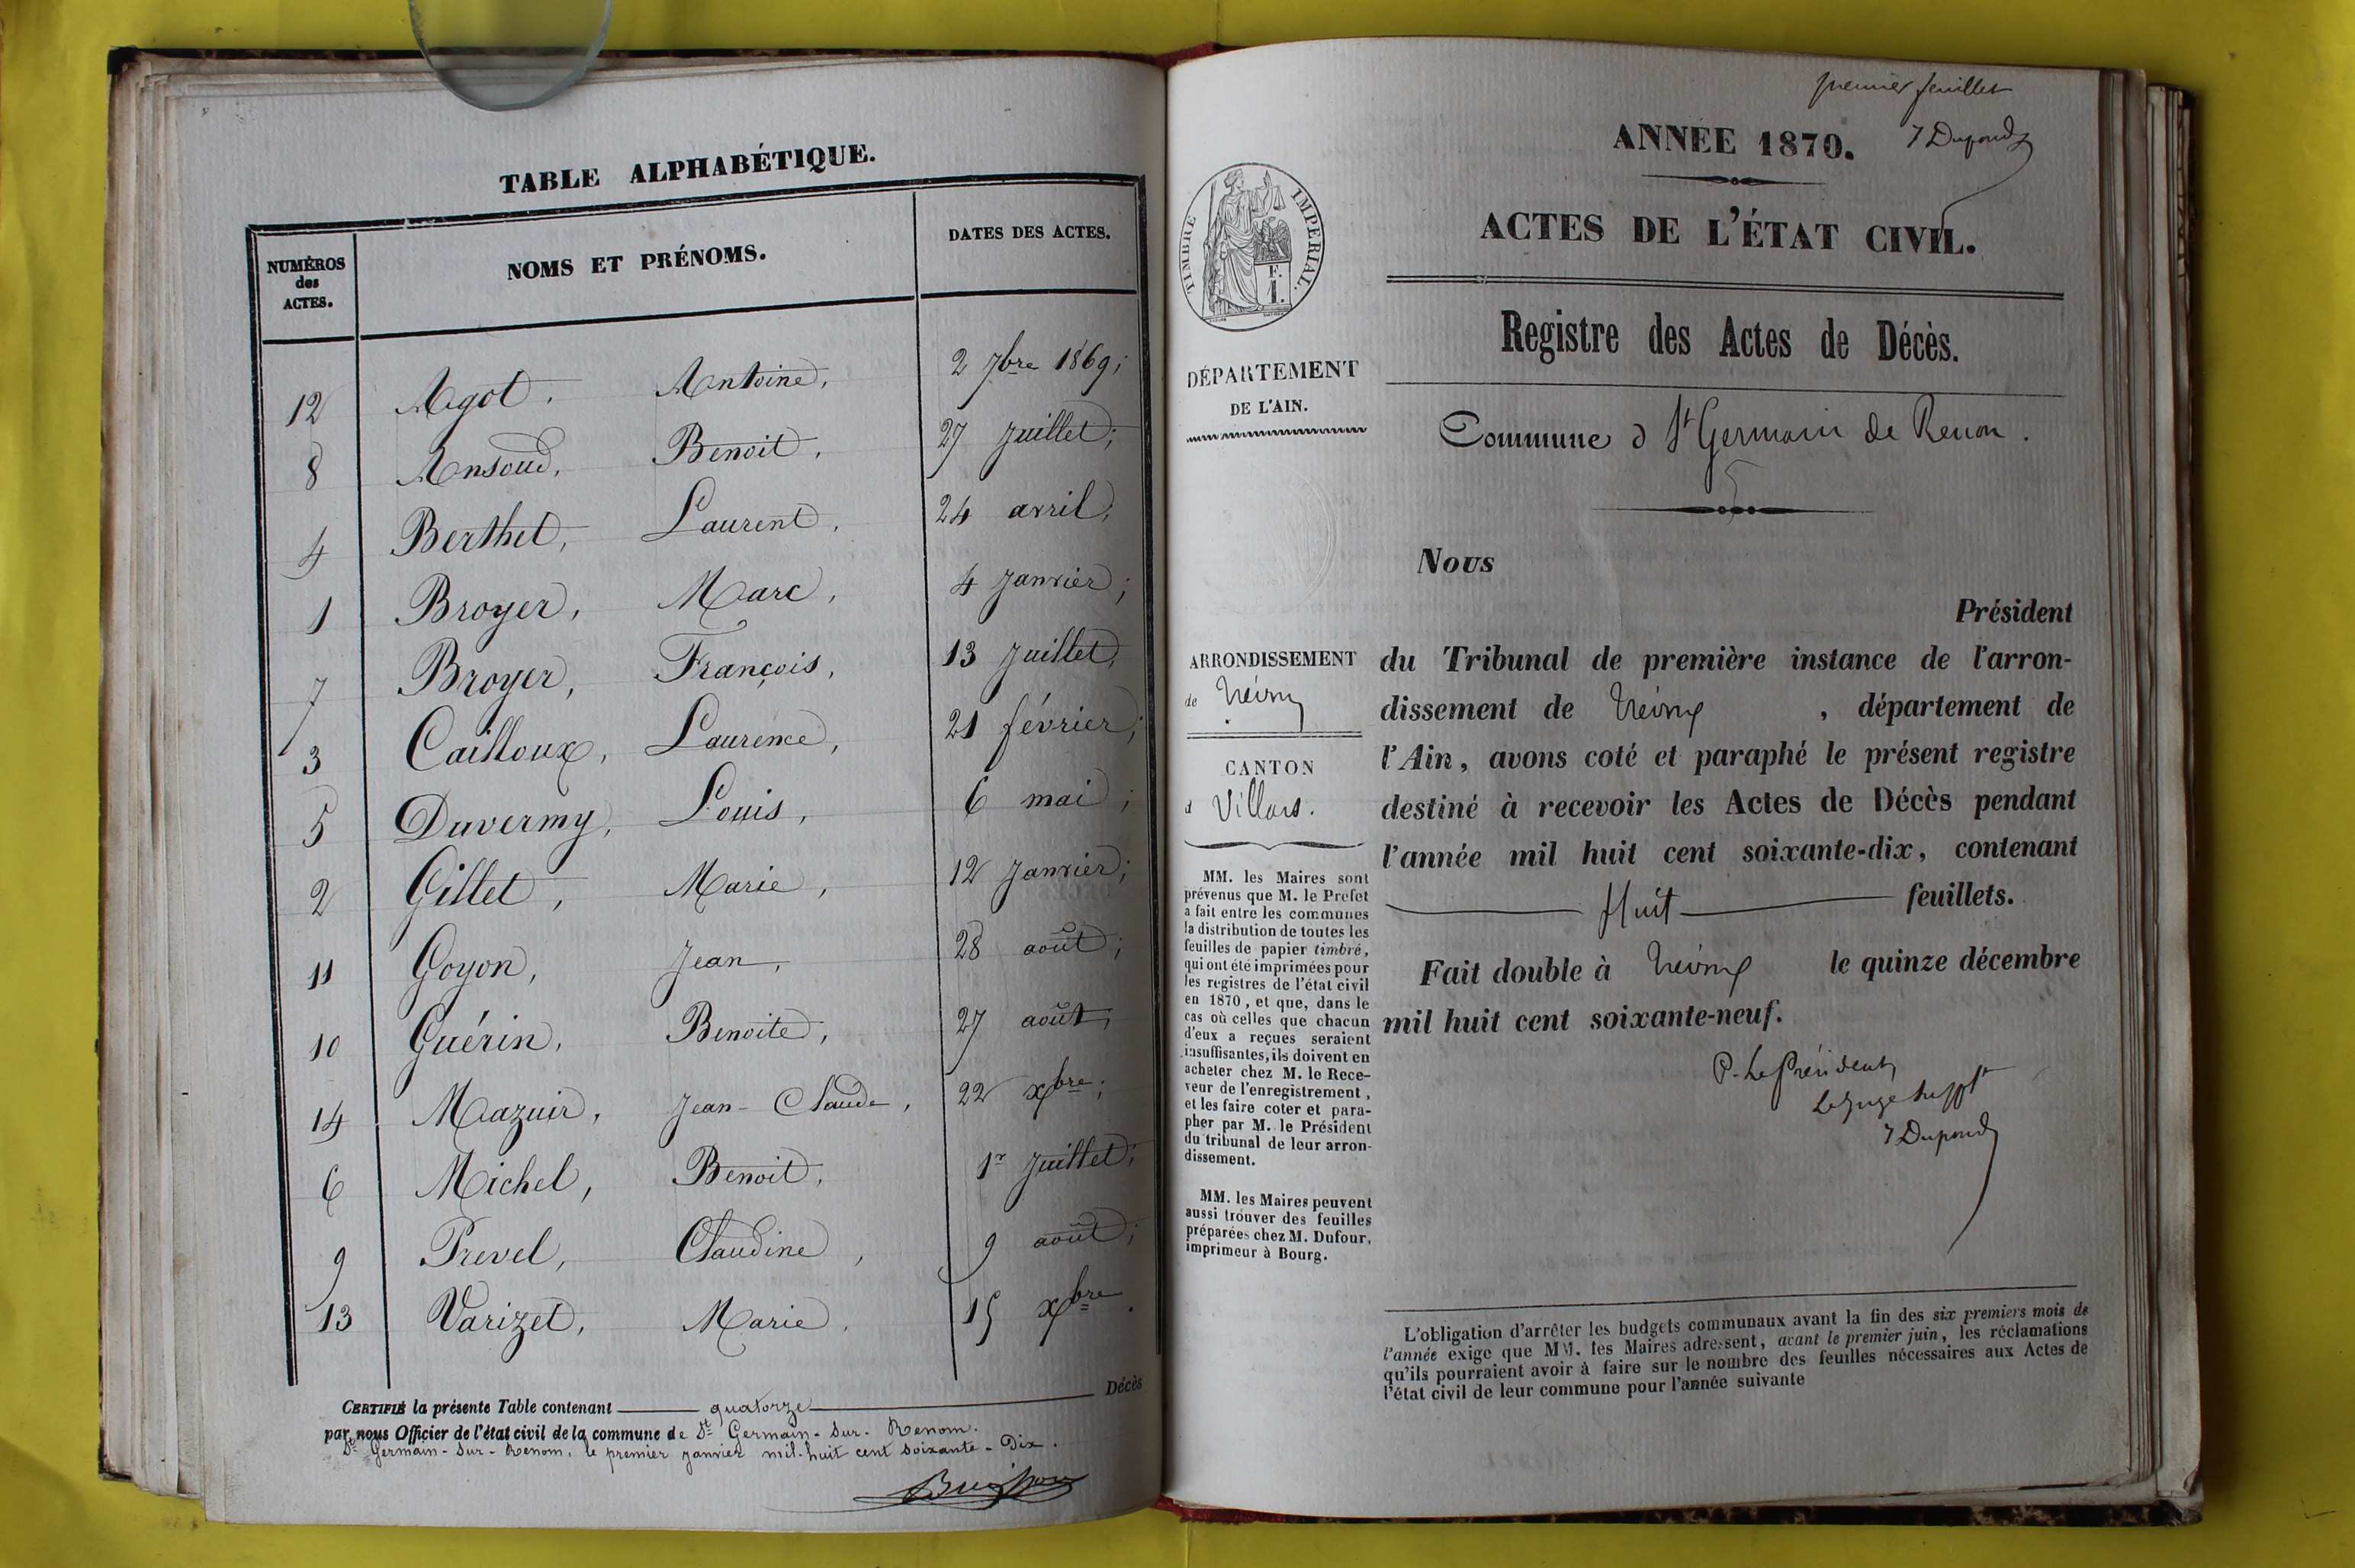 TABLE ALPHABÉTIQUE.
NUMÉROS des ACTES. NOMS ET PRÉNOMS. DATES DES ACTES.
12 Agot, Antoine, 2 7bre 1869;
8 Ansoud, Benoit, 27 juillet;
4 Berthet, Laurent, 24 avril;
1 Broyer, Marc, 4 janvier;
7 Broyer, François, 13 juillet;
3 Cailloux, Laurence, 21 février;
5 Duvermy, Louis, 6 mai;
2 Gillet, Marie, 12 janvier;
11 Goyon, Jean, 28 août;
10 Guérin, Benoite, 27 août;
14 Mazuir, Jean-Claude, 22 xbre;
6 Michel, Benoit, 1r juillet;
9 Prevel, Claudine, 9 août;
13 Varizet, Marie, 15 xbre.
CERTIFIÉ la présente Table contenant quatorze Décès
par nous Officier de l'état civil de la commune de St Germain-sur-Renom.
St Germain-sur-Renom, le premier janvier mil-huit cent soixante-Dix.
premier feuillet
J Dupond
ANNÉE 1870.
ACTES DE L'ÉTAT CIVIL.
Registre des Actes de Décès.
Commune d St Germain de Renon.
TIMBRE IMPÉRIAL.
F.
1.
DÉPARTEMENT
DE L'AIN.
ARRONDISSEMENT
de Trévoux
CANTON
d Villars.
MM. les Maires sont
prévenus que M. le Préfet
a fait entre les communes
la distribution de toutes les
feuilles de papier timbré,
qui ont été imprimées pour
les registres de l'état civil
en 1870, et que, dans le
cas où celles que chacun
d'eux a reçues seraient
insuffisantes, ils doivent en
acheter chez M. le Rece-
veur de l'enregistrement,
et les faire coter et para-
pher par M. le Président
du tribunal de leur arron-
dissement.
MM. les Maires peuvent
aussi trouver des feuilles
préparées chez M. Dufour,
imprimeur à Bourg.
Nous
Président
du Tribunal de première instance de l'arron-
dissement de Trévoux, département de
l'Ain, avons coté et paraphé le présent registre
destiné à recevoir les Actes de Décès pendant
l'année mil huit cent soixante-dix, contenant
Huit feuillets.
Fait double à Trévoux le quinze décembre
mil huit cent soixante-neuf.
P. Le Président
Le Juge Supplt
J Dupond
L'obligation d'arrêter les budgets communaux avant la fin des six premiers mois de
l'année exige que MM. les Maires adressent, avant le premier juin, les réclamations
qu'ils pourraient avoir à faire sur le nombre des feuilles nécessaires aux Actes de
l'état civil de leur commune pour l'année suivante